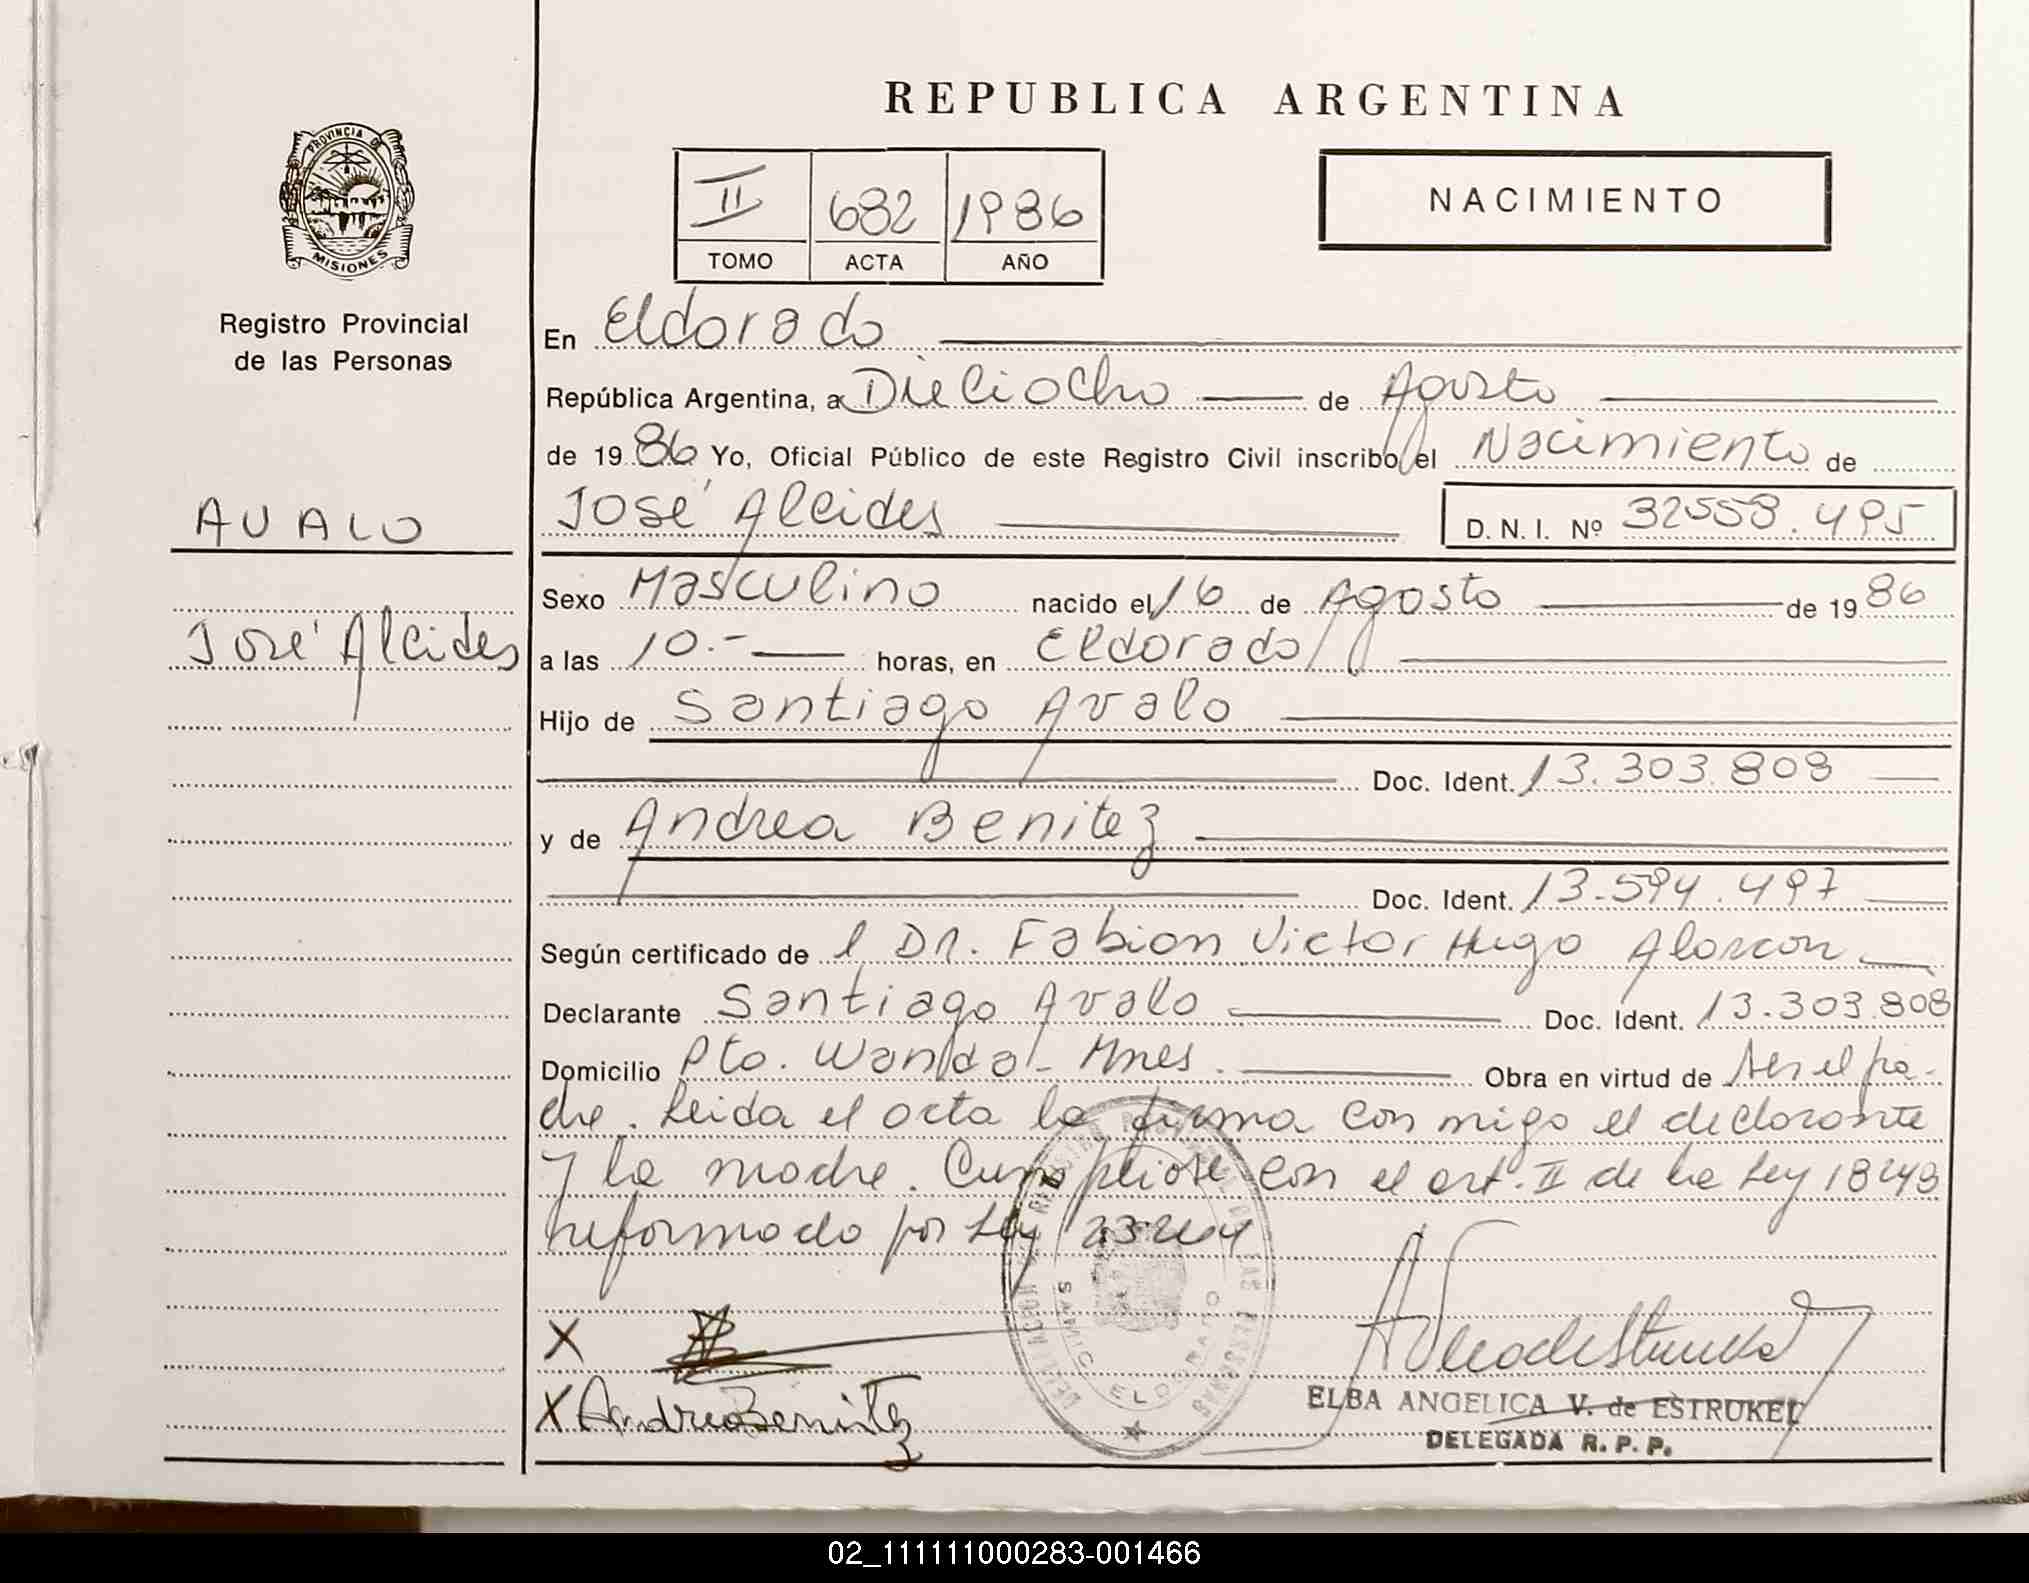 REPUBLICA ARGENTINA
PROVINCIA DE
MISIONES
Registro Provincial
de las Personas
II 682 1986
TOMO ACTA AÑO
NACIMIENTO
AVALO
José Alcides
En Eldorado
República Argentina, a Dieciocho de Agosto
de 1986 Yo, Oficial Público de este Registro Civil inscribo el Nacimiento de
José Alcides D. N. I. Nº 32558.495
Sexo Masculino nacido el 16 de Agosto de 1986
a las 10.- horas, en Eldorado
Hijo de Santiago Avalo
Doc. Ident. 13.303.808
y de Andrea Benitez
Doc. Ident. 13.594.497
Según certificado de l Dr. Fabian Victor Hugo Alarcon
Declarante Santiago Avalo Doc. Ident. 13.303.808
Domicilio Pto. Wanda - Mnes. Obra en virtud de ser el pa-
dre. Leida el acta la firma con migo el declarante
y la madre. Cumpliose con el art. II de la Ley 18248
reformado por Ley 23264
X
X Andrea Benitez
DELEGACION REGISTRO PROVINCIAL DE LAS PERSONAS
SAMIC ELDORADO
ELBA ANGELICA V. de ESTRUKEL
DELEGADA R. P. P.
02_111111000283-001466